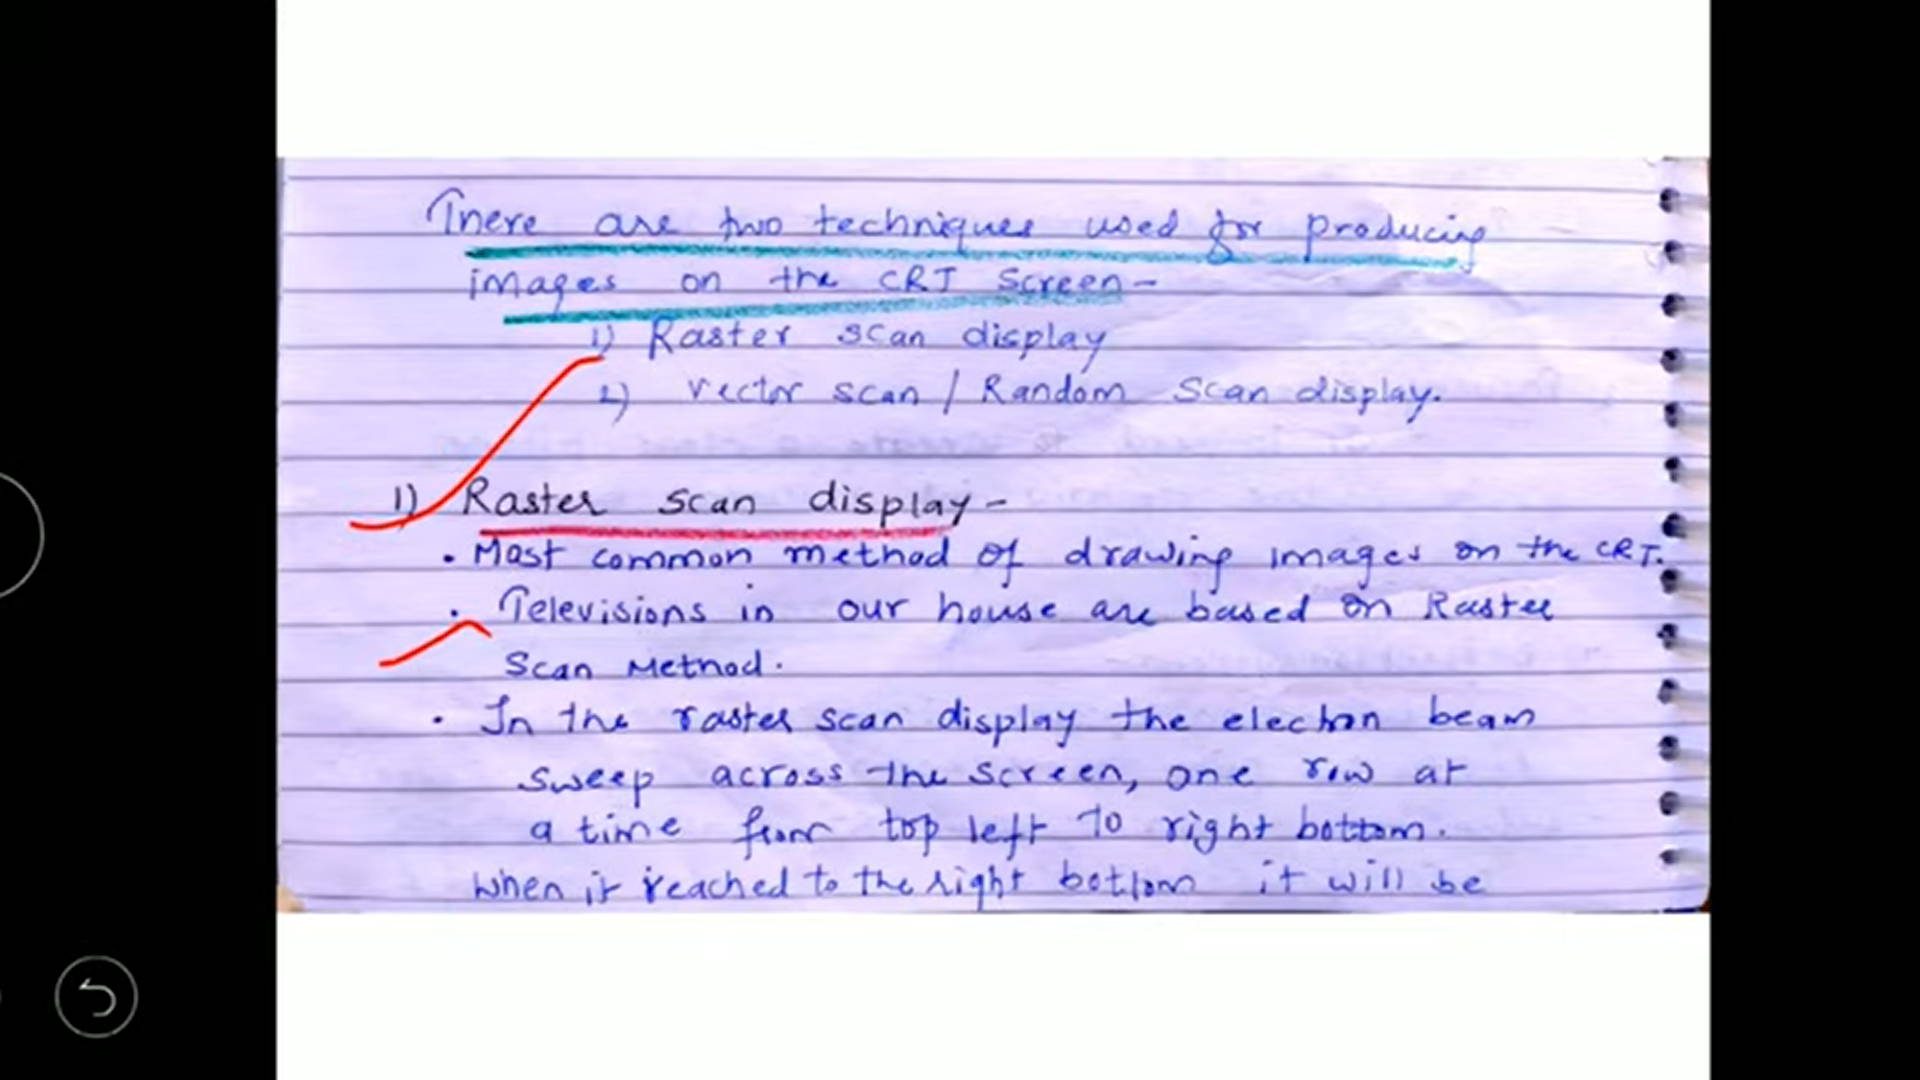 There are two techniques used for producing
images on the CRT Screen-
1) Raster scan display
2) vector scan / Random Scan display.
1) Raster scan display-
• Most common method of drawing images on the CRT.
• Televisions in our house are based on Raster
Scan Method.
• In the raster scan display the electron beam
sweep across the screen, one row at
a time from top left to right bottom.
when it reached to the right bottom it will be